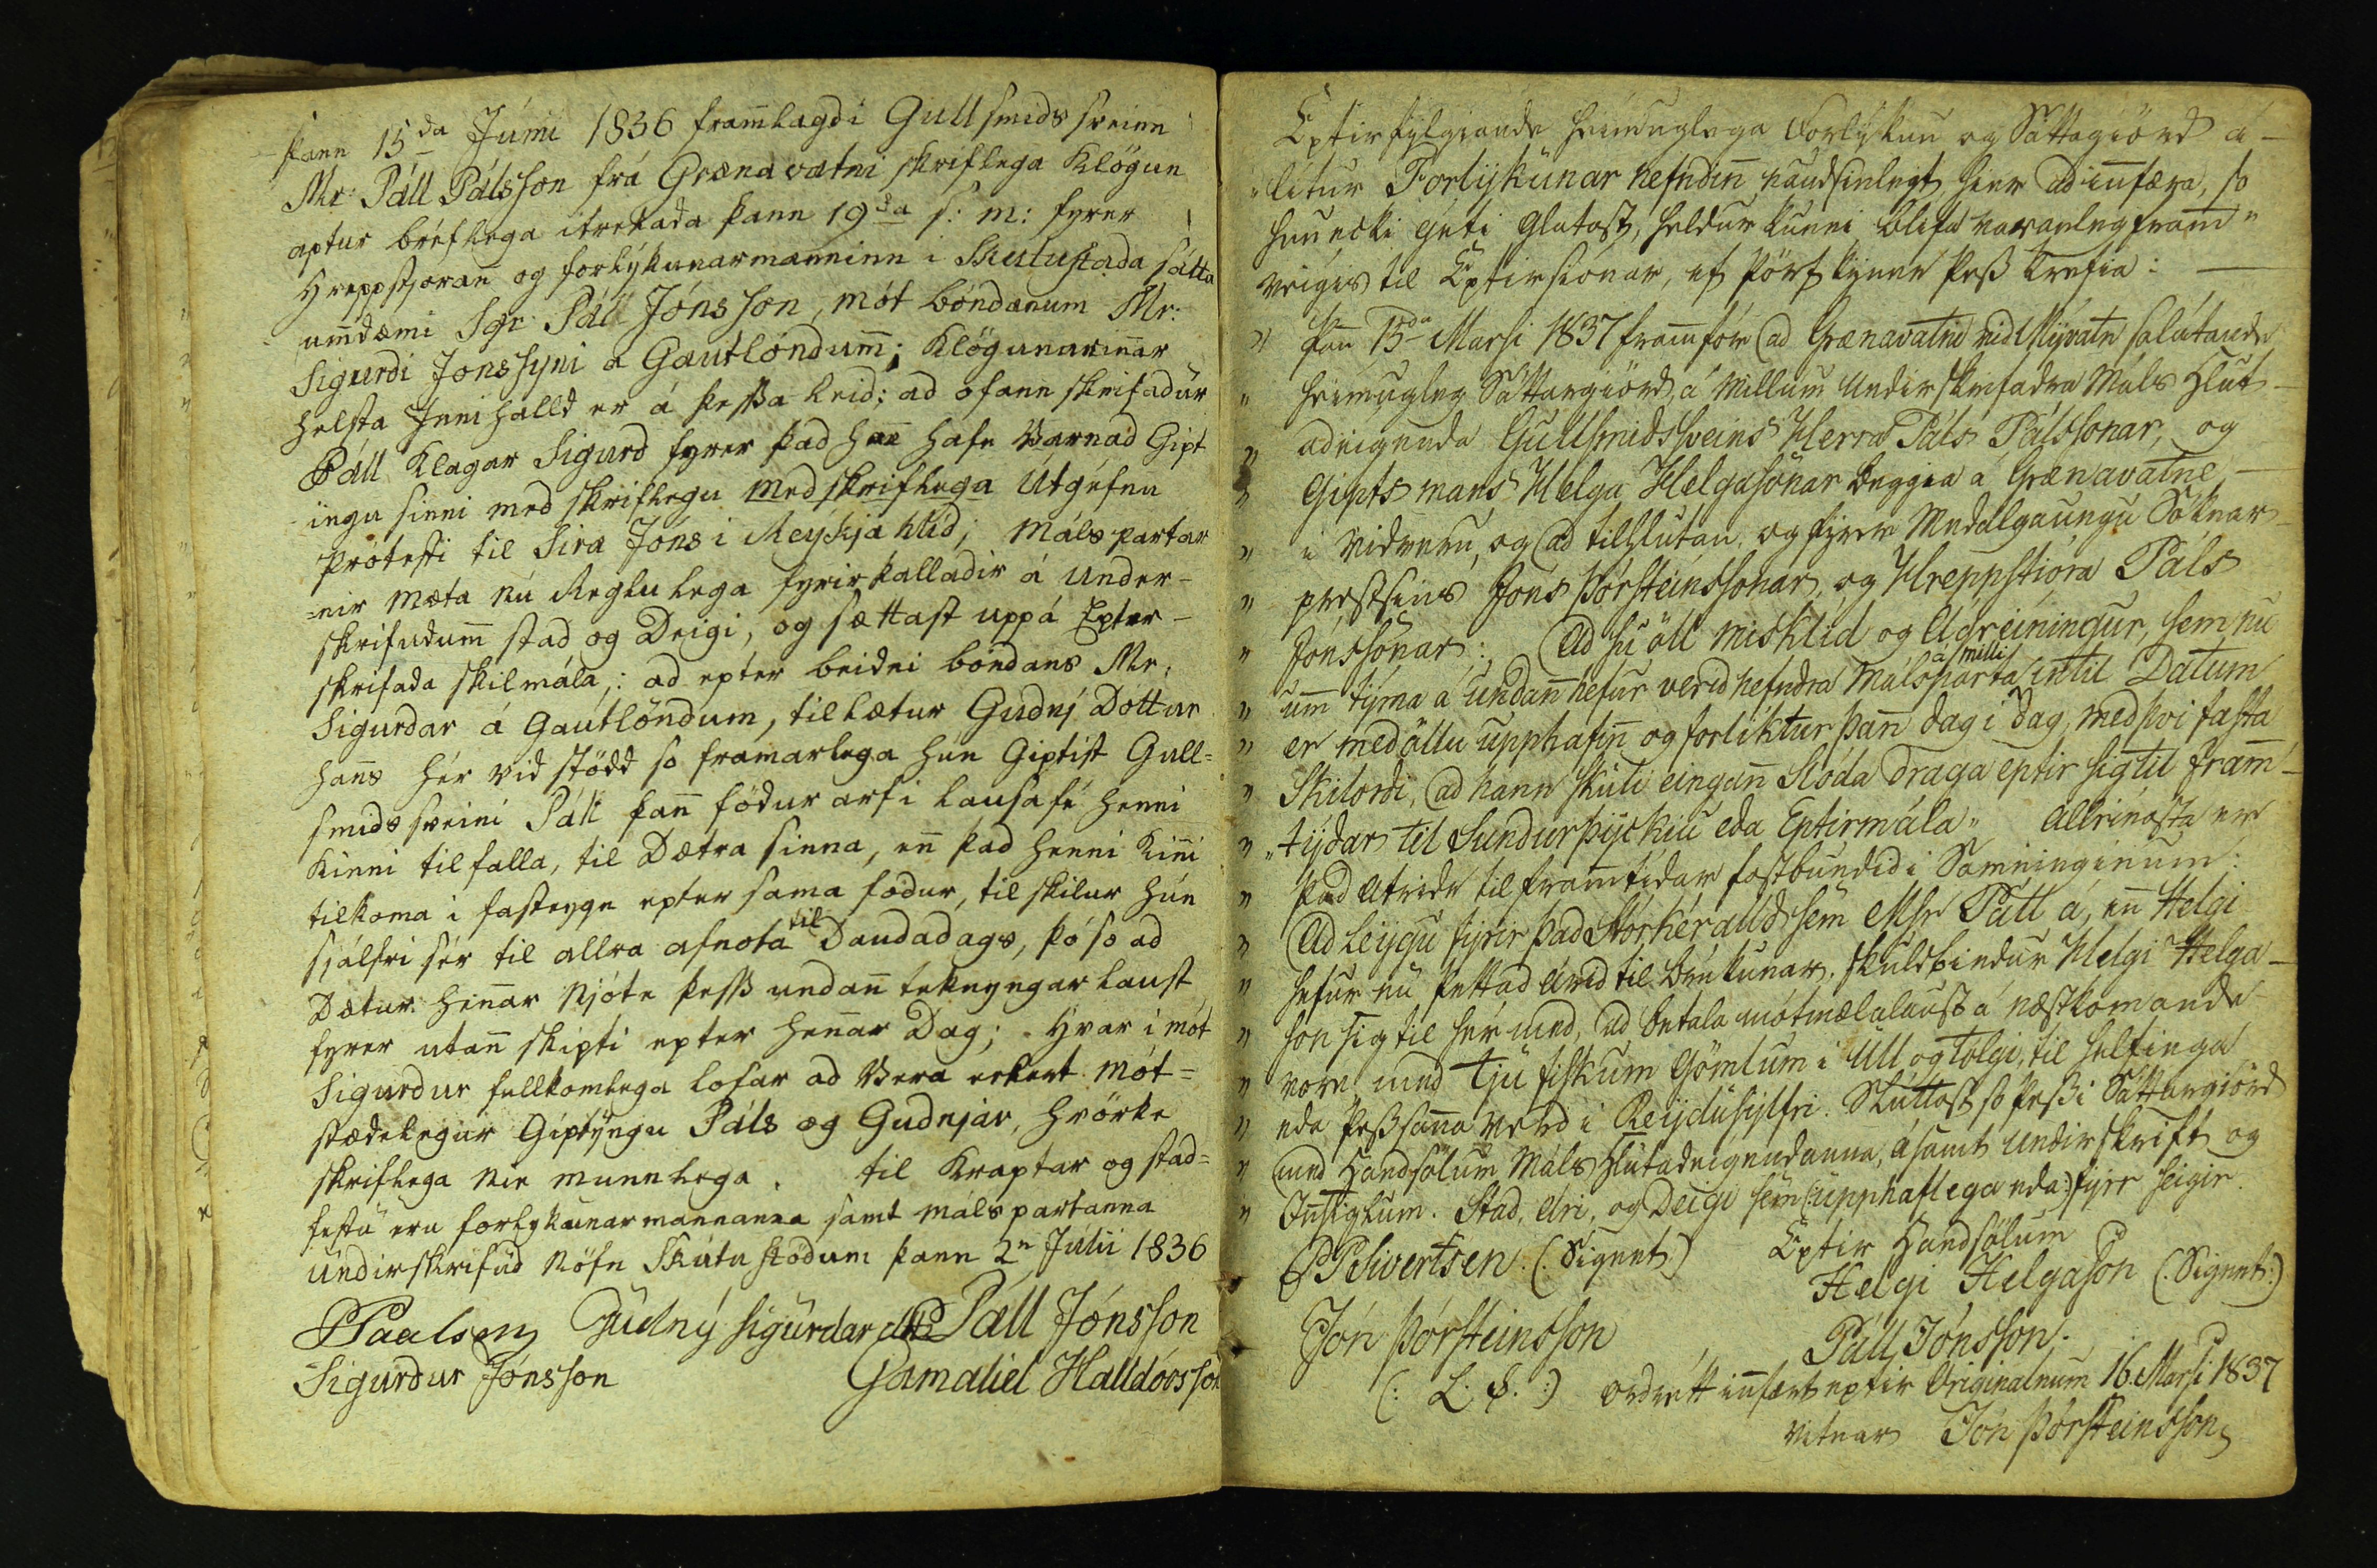 þann 15da Júni 1836 framlagdi Gullsmids sveinn
Mr: Páll Pálsson frá Grænavatni skriflega Klögun
aptur bréflega itrekada þann 19da s: m: fyrer
Hreppstjorann og forlykunarmanninn i Skutustada sátta
umdæmi Sgr: Páll Jónsson, mót bóndanum Mr:
Sigurdi Jonssyni a Gautlöndum; Klögunarinnar
helsta Innihalld er á þessa leid: ad ofann skrifadur
Páll Klagar Sigurd fyrer þad hann hafe Varnad Gipt
ingu sinni med skriflegu med skriflega Utgéfnu
Protesti til Sira Jóns i Reykjahlid; Málspartar
=nir Mæta nú Reglulega fyrirkalladir á under-
skrifudum stad og Deigi, og sættast uppá Epter-
skrifada skilmála: ad epter beidni bóndans Mr:
Sigurdar á Gautlöndum, tillætur Gudný Dottur
hans hér vid stödd so framarlega hún Giptist Gull=
smids sveini Páli þann födur arf i lausafé henni
kinni tilfalla, til Dætra sinna, enn þad henni kinni
tilkoma i fasteygn epter sama födur, tilskilur hún
sjálfri sér til allra afnota til Daudadags, þó so ad
Dætur hennar Njóte þess undann teknyngarlaust
fyrer utann skipti epter hennar Dag; Hvar i mót
Sigurdur fullkomlega lofar ad Vera eckert mót=
stædelegur Giptyngu Páls og Gudnýar, hvörke
skriflega nie munnlega. til Kraptar og stad=
festu eru forlykunarmannanna samt málspartanna
undirskrifud Nöfn Skútustödum þann 2n Júlii 1836
PPaalsen Gudný Sigurdar dottir Páll Jónsson
Sigurdur Jónsson Gamaliel Halldórsson
Eptirfylgiande heimuglega Forlykun og Sáttagiörd á-
"litur Forlijkunar nefndin naudsinlegt hier ad innfæra, so
hun ecki géti Glatast, heldur kunni blifa varanleg fram"
veigis til Eptirsiónar, ef þörf kynne þess krefia:
" þann 15da Marsi 1837 framfór ad Grænavatni vid Mývatn salútande
" heimugleg Sáttargiörd, á Millum Undirskrifadra Máls Hlut-
" adeigenda Gullsmidssveins Herra Páls Pálssonar, og
" Gipts mans Helga Helgasonar beggia á Grænavatne
" i Vidveru, og ad tilhlutan, og fyrer Medalgaungu Sóknar-
" prestsins Jóns Þórsteinssonar, og Hreppstióra Páls
" Jónssonar: Ad sú öll misklid og Agreiningur, sem nú
" um tijma á undann hefur verid nefndra Málsparta á milli intil Datum
" er med öllu upphafinn og forliktur þann dag i dag, med þvi fasta
" Skilordi, ad hann skuli eingann Slóda draga eptir sig til fram-
" "tijdar til Sundurþijckiu eda Eptirmála" Allrinæsta er
" þad Atride til framtidar fastbundid i Samninginum:
" Ad leijgu fyrir þad Stórkéralld sem Msr Páll á, enn Helgi
" hefur nú þettad Arid til brúkunar, skuldbindur Helgi Helga-
" son sig til hér med, ad betala mótmælalaust á næstkomande
" vore med Tju fiskum Gömlum i Ull og Tolgi, til helfinga
" eda þess sanna Verd i Reijdusylfri. Skuttast so þessi Sáttargiörd
" med Handsölum Máls Hlutadeigendanna, ásamt Undirskrift og
" Innsiglum. Stad, Ari, og Deigi sem (upphaflega eda:) fyrr seigir.
PSivertsen. (:Signet) Eptir Handsölum
Helgi Helgason (:Signet:)
Jón Þórsteinsson Páll Jónsson.
(: L. S. :) Ordrétt innfært eptir Originalnum 16. Marsi 1837
vitnar Jón Þórsteinsson